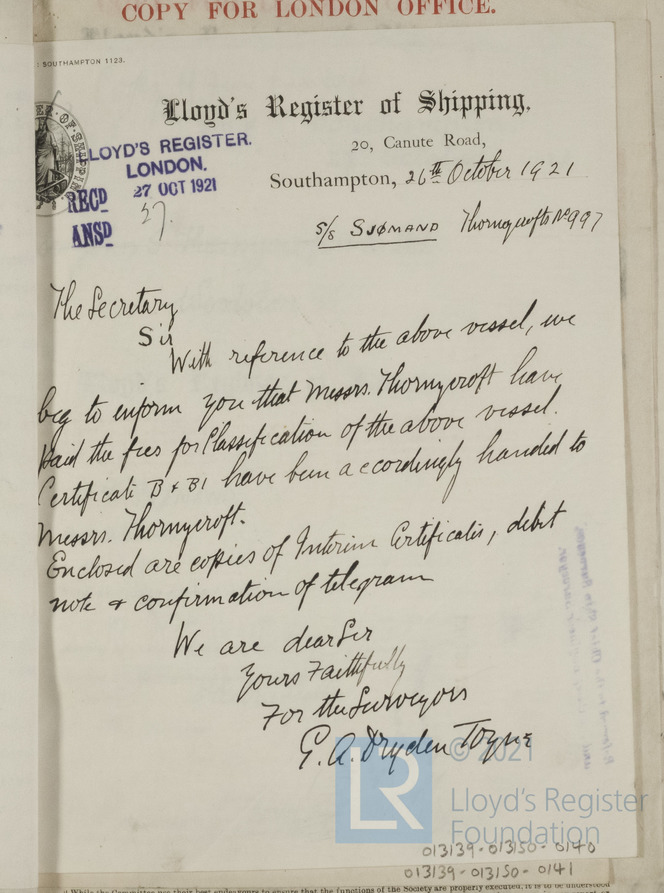 COPY FOR LONDON OFFICE.
SOUTHAMPTON 1123.
Lloyd's Register of Shipping,
20, Canute Road,
Southampton, 26th October 1921
LOYD'S REGISTER.
LONDON.
RECD 27 OCT 1921
ANSD 27.
S/S SJØMAND Thornycrofts No 997
The Secretary
Sir
With reference to the above vessel, we
beg to inform you that Messrs. Thornycroft have
paid the fees for Classification of the above vessel.
Certificate B & B1 have been accordingly handed to
Messrs. Thornycroft.
Enclosed are copies of Interim Certificates, debit
note & confirmation of telegram
We are dear Sir
Yours Faithfully
For the Surveyors
G. A. Dryden Toyne
© 2021
LR
Lloyd's Register
Foundation
013139-013150-0140
013139-013150-0141
While the Committee use their best endeavours to ensure that the functions of the Society are properly executed, it is to be understood